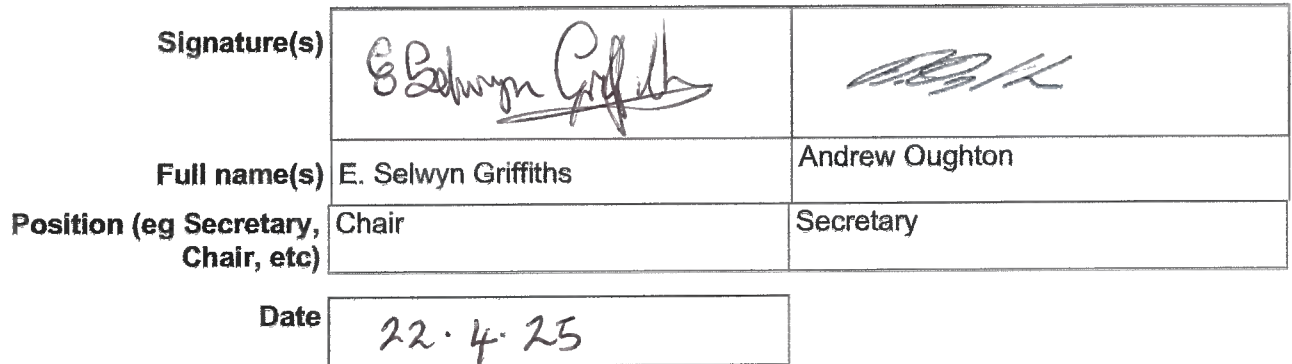 Signature(s) E Selwyn Griffiths
Full name(s) E. Selwyn Griffiths Andrew Oughton
Position (eg Secretary, Chair Secretary
Chair, etc)
Date 22.4.25